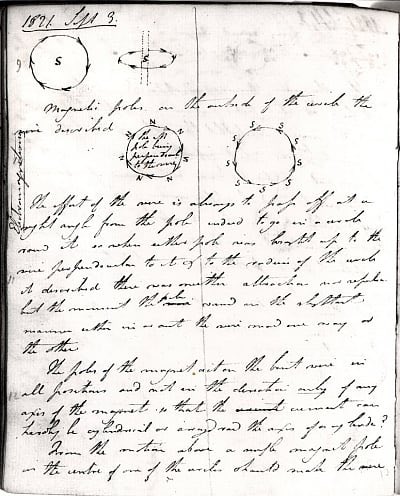 1821. Sept 3.
S S
Magnetic poles on the outside of the circle the
wire described
N N N N N N
& the
pole being
perpendicular
to the wire
S S S S S S S S
Electromagnetism
The effort of the wire is always to pass off at a
right angle from the pole indeed to go in a circle
round it so when either pole was brought up to the
wire perpendicular to it & to the radius of the circle
it described there was neither attraction nor repulsion
but the moment the pole varied in the slightest
manner either in or out the wire moved one way or
the other
The poles of the magnet act on the bent wire in
all positions and not in the direction only of any
axis of the magnet so that the current can
hardly be cylindrical or arranged round the axis of a cylinder?
From the motion above a single magnet pole
in the centre of one of the circles should make the wire